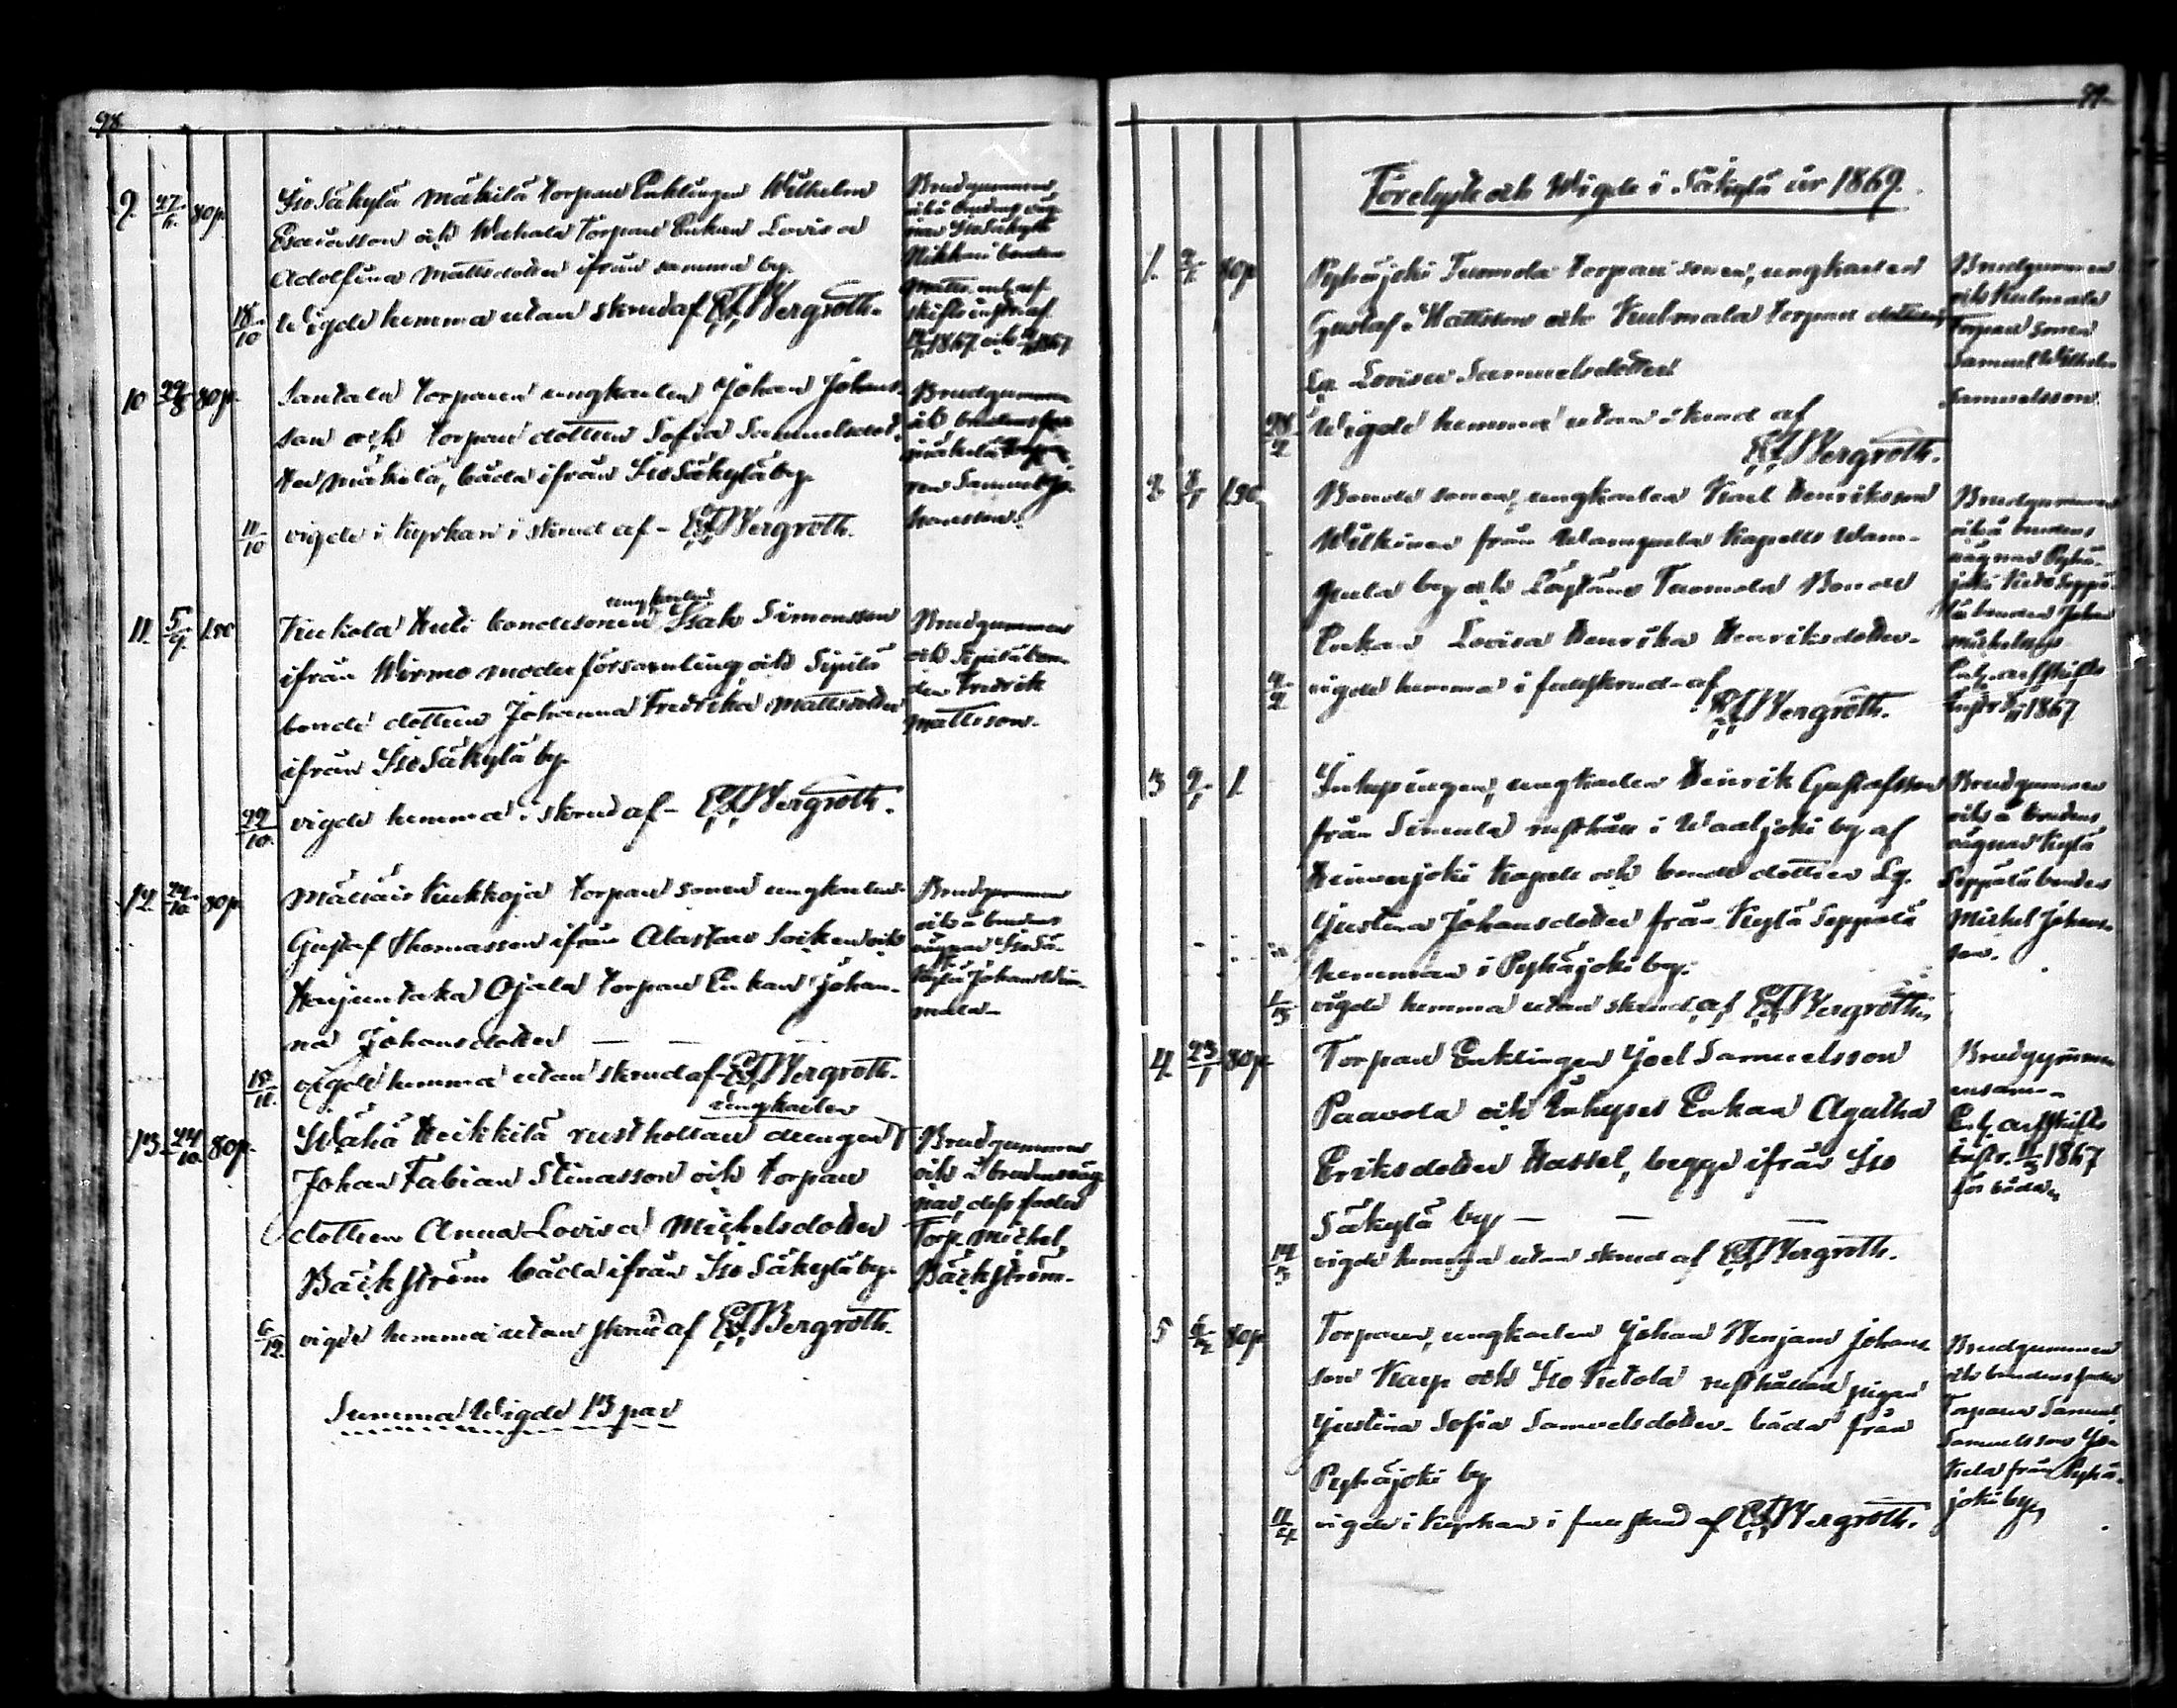 98.
9. 27/6. 80 p. IsoSäkylä Mäkilä torpan Enklingen Wilhelm
Esaiasson och Wahala Torpans Enkan Lovisa
Adolfina Mattsdotter ifrån samma by.
18/10 Wigde hemma utan skrud af Bergroth.
Brudgummen
och å brudens väg
nar IsoSäkylä
bonden
skifts instr. af
1867 och 1867
10 80 p. Santala torparen ungkarlen Johan Johans-
son och torpare dottren Sofia Samuelsdot-
ter Mäkilä, båda ifrån IsoSäkylä by.
11/10 vigde i Kyrkan i skrud af - Bergroth.
Brudgummen
och brudens far
Mäkilä torpa
ren Samuel Jo-
hansson.
11. 5/9. 1.80
ungkarlen
bondesonen Isak Simonsson
ifrån Wirmo moderförsamling och Sipilä
bonde dottren Johanna Fredrika Mattsdotter
ifrån IsoSäkylä by.
22/10. vigde hemma i skrud af - Bergroth.
Brudgummen
och Sipilä bon-
den Fredrik
Mattsson.
12. 24/10. 80 p. Kukkoja torpare sonen ungkarlen
Gustaf Thomasson ifrån Alastaro Socken och
Ojala torpare Enkan Johan-
na Johansdotter — — —
15/11. vigde hemma utan skrud af Bergroth.
Brudgummen
och å brudens
vägnar IsoSä-
kylä Johan
13. 24/10. 80 p.
ungkarlen
Wähä Heikkilä rusthållare drengen
Johan Fabian Stinasson och torpare
dottren Anna Lovisa Michelsdotter
Bäckström båda ifrån Iso Säkylä by.
6/12. vigde hemma utan skrud af Bergroth.
Brudgummen
och å brudens väg
nar, dess fader
Torp. Michel
Bäckström.
Summa Wigde 13 par
99.
Förelyste och Wigde i Säkylä år 1869.
1. 80 p. Pyhäjoki Tuomola torpare sonen, ungkarlen
Gustaf Mattsson och Kulmala torpare dottren
Lovisa Samuelsdotter
28/2 Wigde hemma utan skrud af
Bergroth.
Brudgummen
och Kulmala
Torpare sonen
Samuel Wilhelm
Samuelsson.
2. Bonde sonen, ungkarlen Karl Henriksson
Wilkinen från Wampula Kapells Wam-
pula by och Löytäne Tuomola Bonde
Enkan Lovisa Henrika Henriksdotter.
vigde hemma i full skrud af
Bergroth.
Brudgummen
och å brudens
vägnar Pyhä-
joki Seppä-
lä bonden Johan
Michelsson
Enl. arfskifts
instr. 1867
3 1. Inhysingen, ungkarlen Henrik Gustafsson
från Simula rusthåll i Waaljoki by af
Hinnerjoki Kapell och bonde dottren
Justina Johansdotter från Kylä Seppälä
hemman i Pyhäjoki by.
1/3 vigde hemma utan skrud af Bergroth.
Brudgummen
och å brudens
vägnar Kylä
Seppälä bonden
Michel Johans-
son.
4. 23/1 80 p. Torpare Enklingen Joel Samuelsson
Paavola och Inhyses Enkan Agatha
Eriksdotter Hassel, begge ifrån Iso
Säkylä by — — —
14/3 vigde hemma utan skrud af Bergroth.
Brudgummen
ensam.
Enl. arfskifts
instr. 1867
för båda
5 80 p. Torparen, ungkarlen Johan Benjam Johans
son Karp och Iso Ketola rusthållare pigan
Justina Sofia Samuelsdotter båda från
Pyhäjoki by
11/4 vigde i Kyrkan i full skrud af Bergroth.
Brudgummen
och brudens fader
Torparen Samuel
Samuelsson
från Pyhä-
joki by